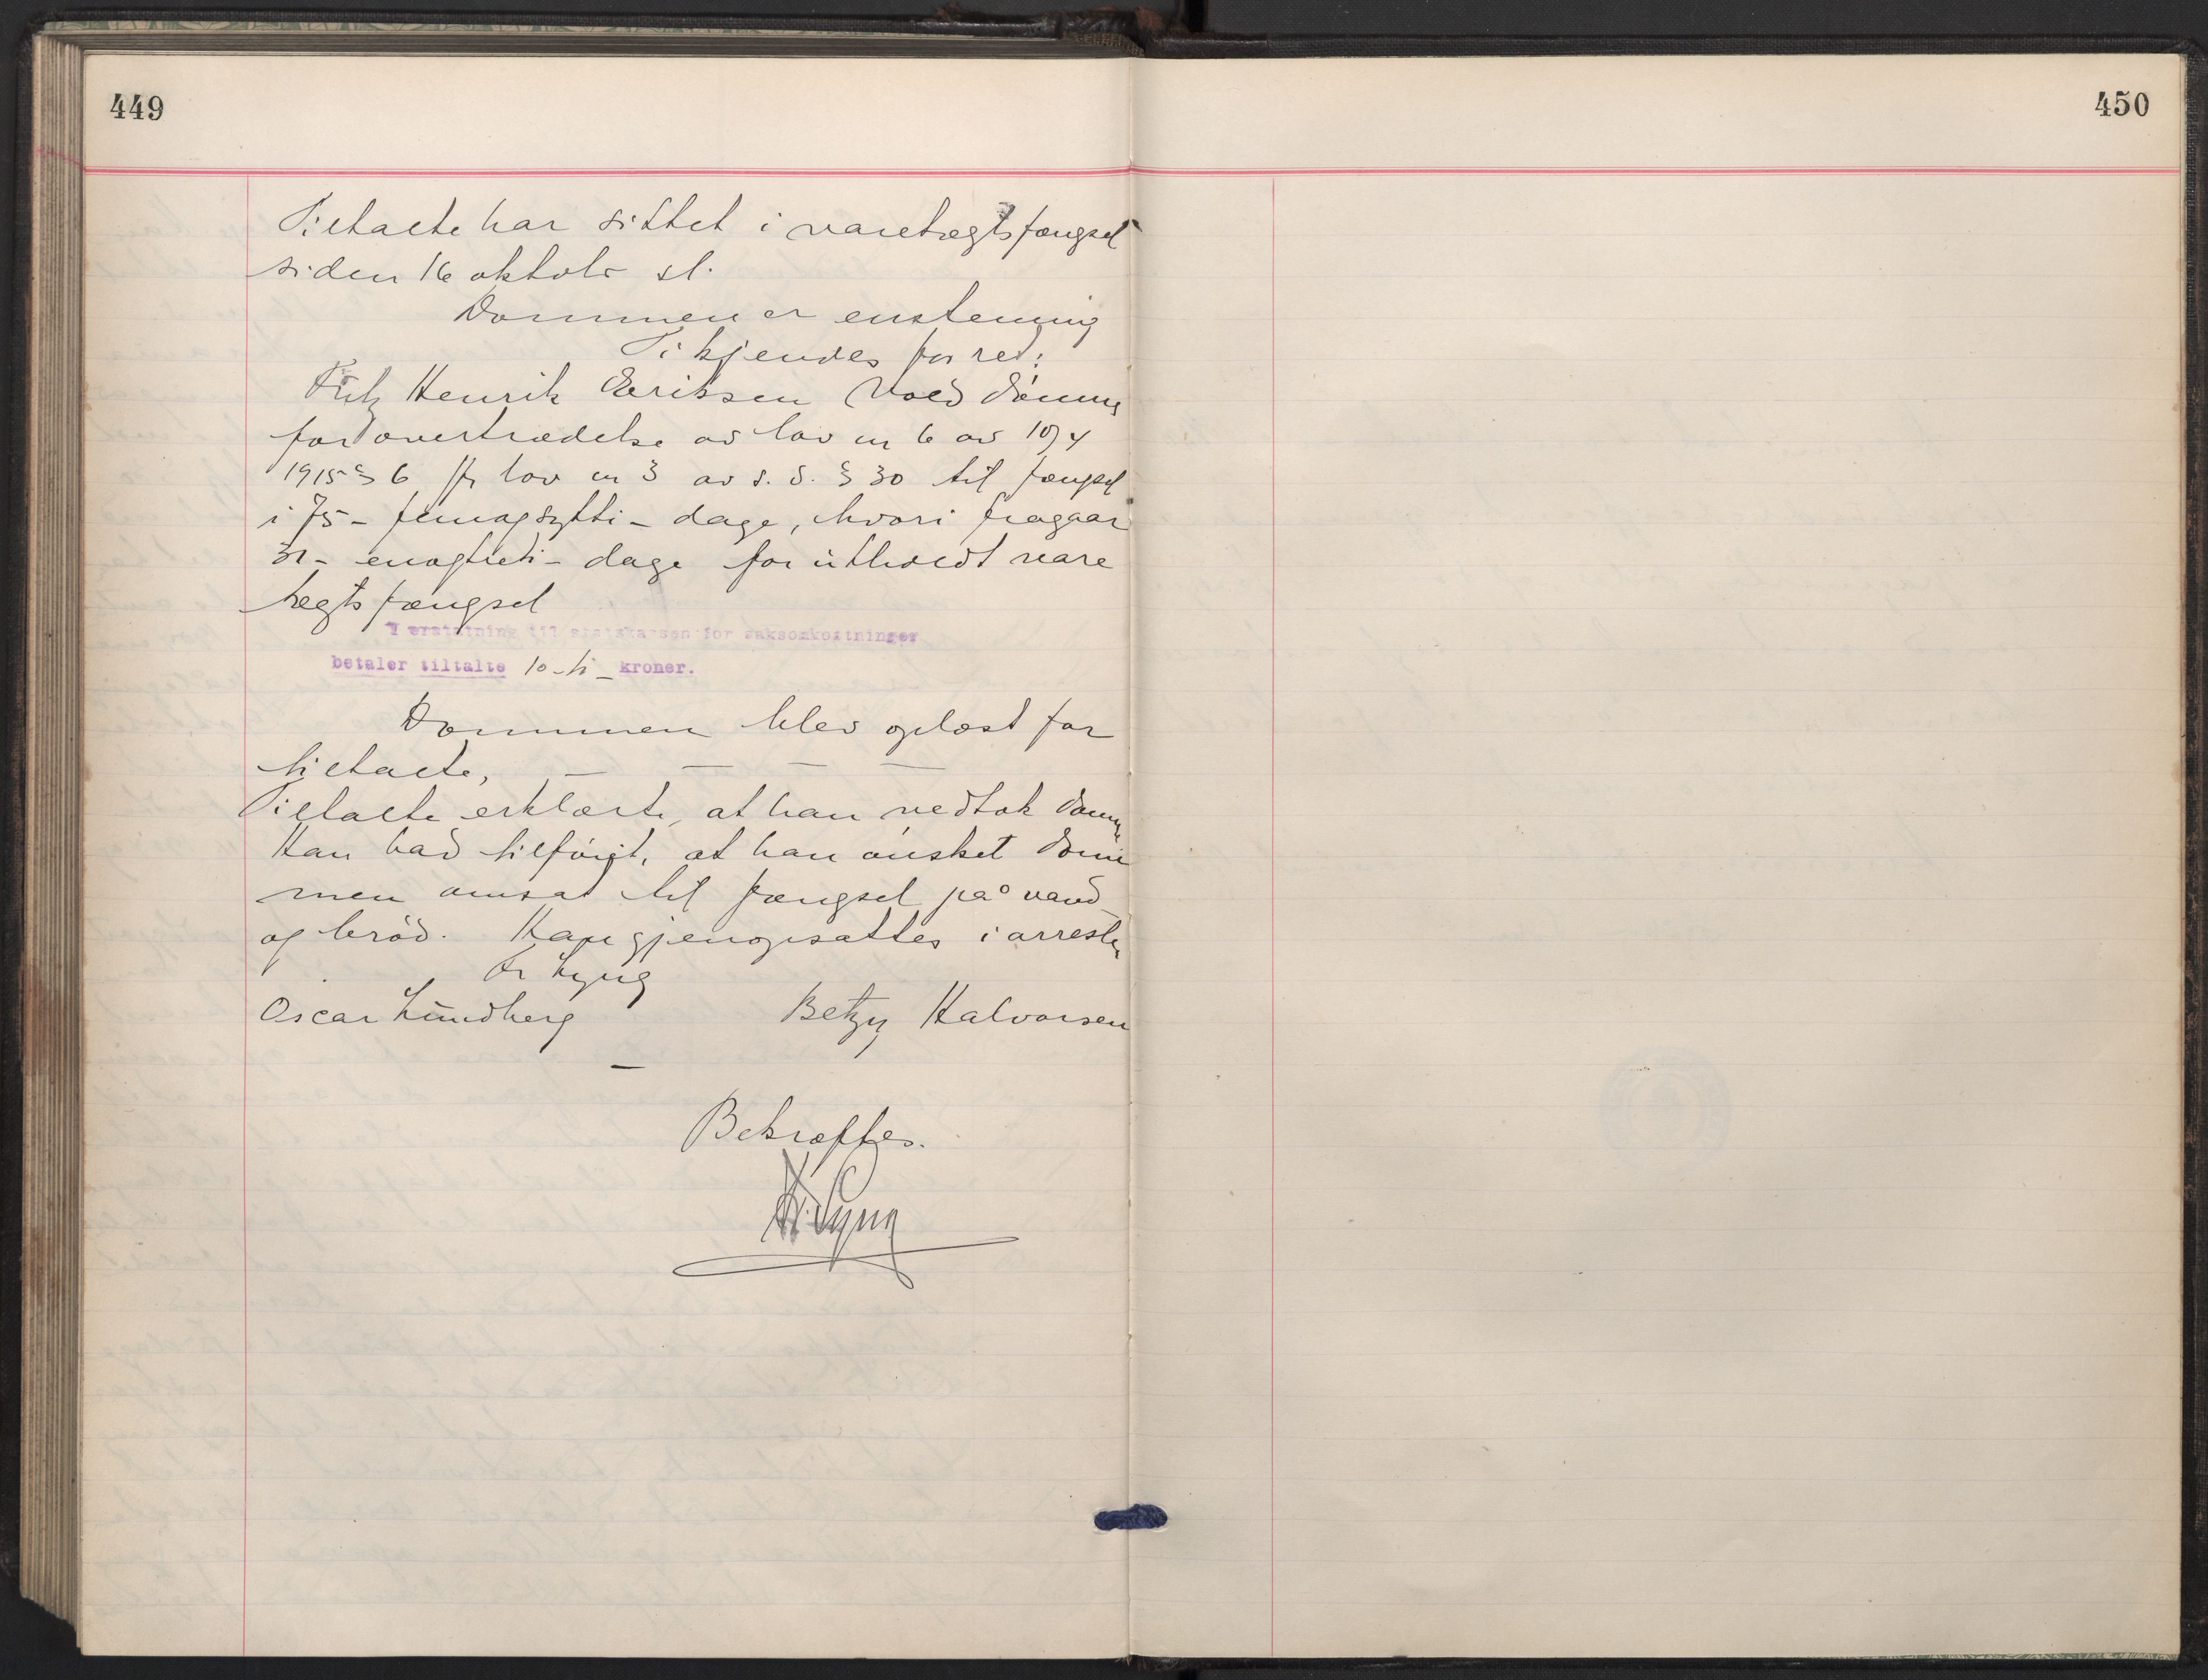 449
450
Tiltalte har sittet i varetægtsfængsel
siden 16 oktobr sl.
Dommen er enstemmig
Ti kjendes for ret:
Henrik Eeriksen Vold dømmes
for overtrædelse av lov nr 6 av 10/4
1915 § 6 jfr lov nr 3 av s. d. § 30 til fængsel
i 75 - femogsytti - dage, hvori fragaar
31 - enogtreti - dage for utholdt vare
tegtsfængsel
I erstatning til statskassen for saksomkostninger
betaler tiltalte 10 - ti - kroner.
Dommen blev oplæst for
tiltalte,
Tiltalte erklærte, at han vedtok dommen
Han bad tilføiet, at han ønsket dom
men omsat til fængsel på vand
og brød. Han gjenopsattes i arresten
Fr Lyng
Oscar Lundberg Betzy Halvorsen
Bekræftes.
Fr. Lyng